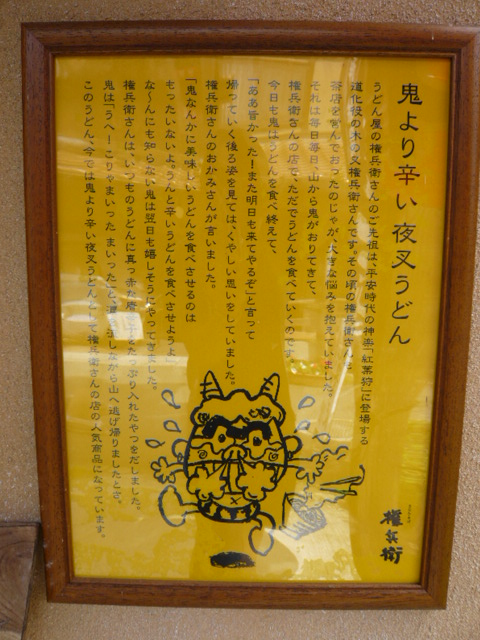 鬼より辛い夜叉うどん
うどん屋の権兵衛さんのご先祖は、平安時代の神楽「紅葉狩」に登場する
道化役の木の又権兵衛さんです。その頃の権兵衛さんも
茶店を営んでおったのじゃが、大きな悩みを抱えていました。
それは毎日毎日、山から鬼がおりてきて、
権兵衛さんの店で、ただでうどんを食べていくのです。
今日も鬼はうどんを食べ終えて、
「ああ旨かった!また明日も来てやるぞ」と言って
帰っていく後ろ姿を見ては、くやしい思いをしていました。
権兵衛さんのおかみさんが言いました。
「鬼なんかに美味しいうどんを食べさせるのは
もったいないよ。うんと辛いうどんを食べさせようよ」
な〜んにも知らない鬼は翌日も嬉しそうにやってきました。
権兵衛さんは、いつものうどんに真っ赤な唐辛子をたっぷり入れたやつをだしました。
鬼は「うへー!こりゃまいったまいった」と、しながら山へ逃げ帰りましたとさ。
このうどん、今では鬼より辛い夜叉うどんとして権兵衛さんの店の人気商品になっています。
権兵衛